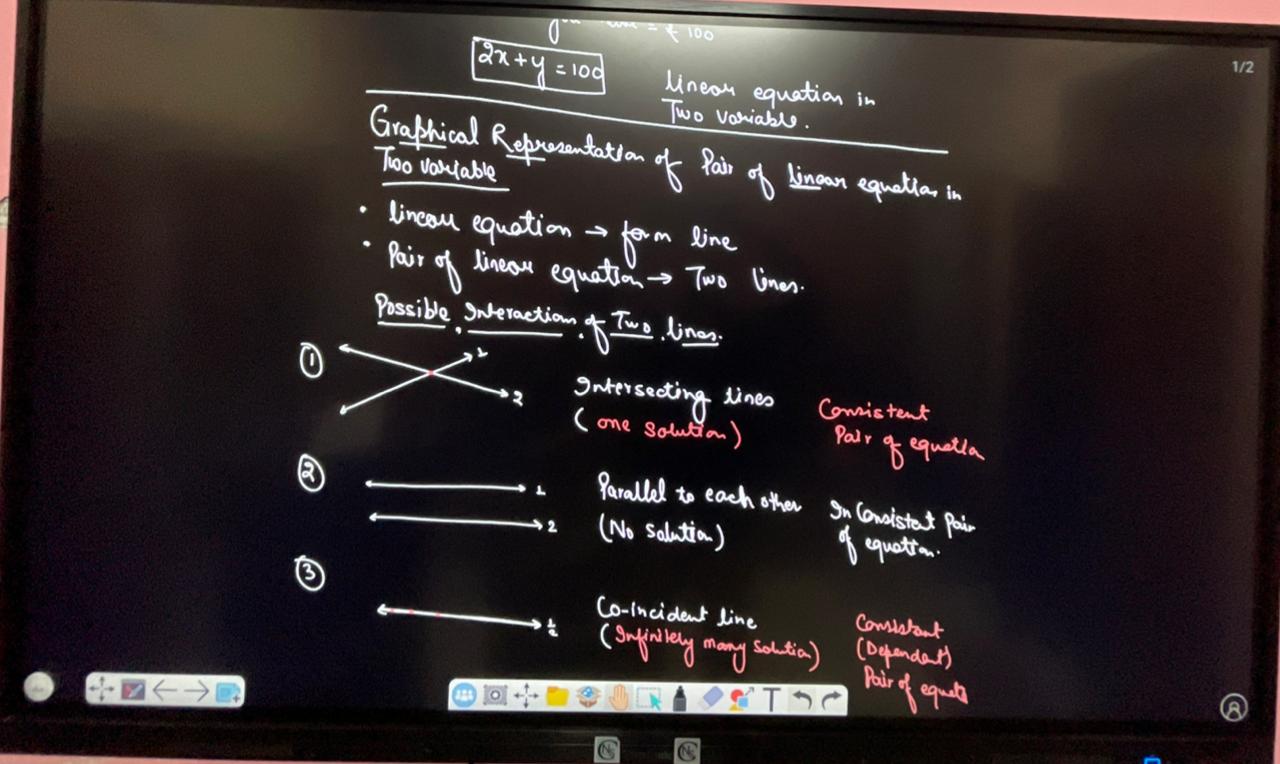 = ₹ 100
2x + y = 100
linear equation in
Two variable.
1/2
Graphical Representation of Pair of linear equation in
Two variable
• linear equation → form line
• Pair of linear equation → Two lines.
Possible Interaction of Two lines.
① 1 2
Intersecting lines
(one solution)
Consistent
Pair of equation
② 1 2
Parallel to each other
(No solution)
InConsistent Pair
of equation.
③ 1 2
Co-incident line
(Infinitely many solution)
Consistant
(Dependent)
Pair of equatio
T